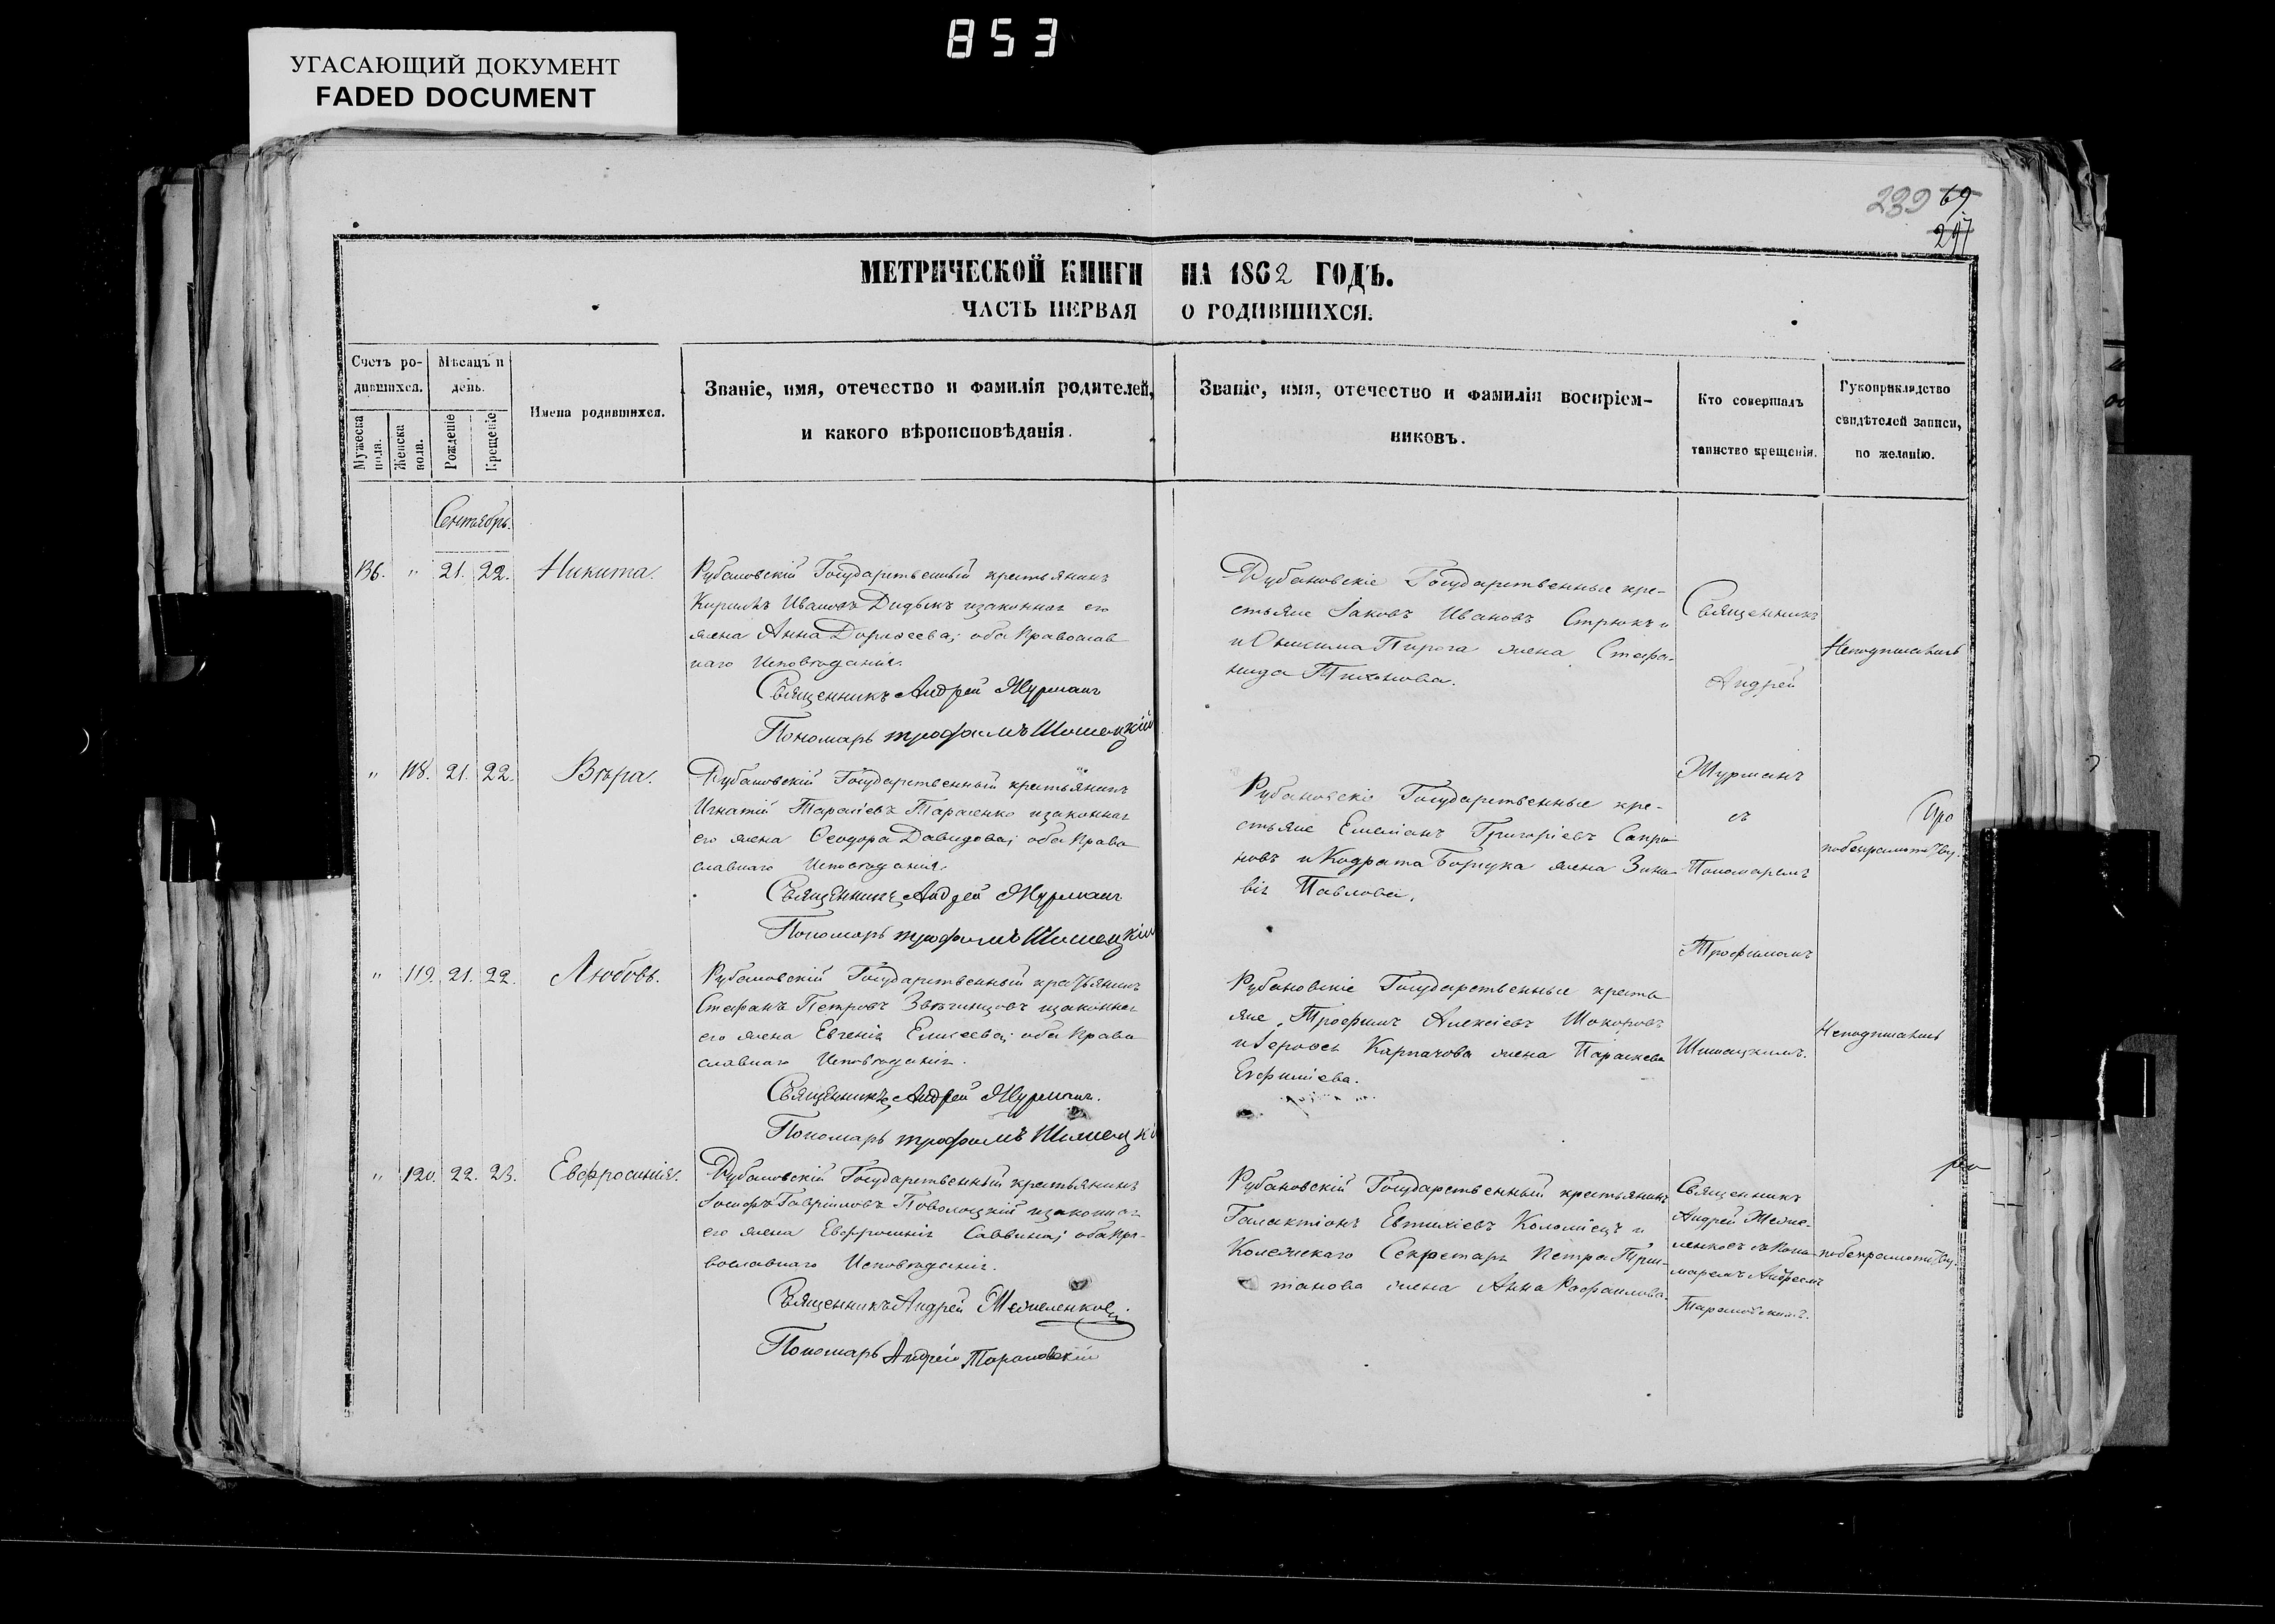 853
УГАСАЮЩИЙ ДОКУМЕНТ
FADED DOCUMENT
239 69
297
МЕТРИЧЕСКОЙ КНИГИ НА 1862 ГОДЪ.
ЧАСТЬ ПЕРВАЯ О РОДИВШИХСЯ.
Счетъ ро-
дившихся.
Мужеска пола.
Женска пола.
Мѣсяцъ и
день.
Рожденіе
Крещеніе
Имена родившихся.
Званіе, имя, отечество и фамилія родителей,
и какого вѣроисповѣданія.
Званіе, имя, отечество и фамилія воспріем-
никовъ.
Кто совершалъ
таинство крещенія.
Рукоприкладство
свидѣтелей записи,
по желанію.
Сентябрь.
136. " 21. 22. Никита.
Рубановскій Государственный крестьянинъ
Кириллъ Ивановъ Дидыкъ и законная его
жена Анна Дорофеева; оба Православ
наго Исповѣданія.
Священникъ Андрей Журманъ
Пономарь Трофимъ Шишацкій
Рубановскіе Государственные кре-
стьяне Іаковъ Ивановъ Стрюкъ и
и Онисима Пирога жена Стефа-
нида Тихонова.
" 118. 21. 22. Вѣра.
Рубановскій Государственный крестьянинъ
Игнатій Тарасіевъ Тараненко и законная
его жена Ѳеодора Давидова; оба Право
славнаго Исповѣданія.
Священникъ Андрей Журманъ
Пономарь Трофимъ Шишацкій
Рубановскіе Государственные кре-
стьяне Емеліанъ Григоріевъ Сапро
новъ и Кодрата Борщука жена Зино
вія Павлова.
" 119. 21. 22. Любовь.
Рубановскій Государственный крестьянинъ
Стефанъ Петровъ Звягинцовъ и законная
его жена Евгенія Елисеева; оба Право
славнаго Исповѣданія.
Священникъ Андрей Журманъ.
Пономарь Трофимъ Шишацкій
Рубановскіе Государственные кресть
яне, Трофимъ Алексіевъ Шокоровъ
Карпачова жена Параскева
Евфиміева.
Священникъ
Андрей
Журманъ
съ
Пономаремъ
Трофимомъ
Шишацкимъ.
" 120. 22. 23. Евфросинія.
Рубановскій Государственный крестьянинъ
Іосифъ Гавріиловъ Поволоцкій и законная
его жена Евфросинія Саввина; оба Пра-
вославнаго Исповѣданія.
Священникъ Андрей Межеленковъ
Пономарь Андрей Тарановскій
Рубановскій Государственный крестьянинъ
Галактіонъ Евтихіевъ Коломіецъ и
Колежскаго Секретаря Петра
жена Анна Рафаилова.
Священникъ
Андрей Меже-
ленковъ съ Поно-
маремъ Андреемъ
Тарановскимъ.
Неподписались
по безграмотству.
Неподписались
по безграмотству.